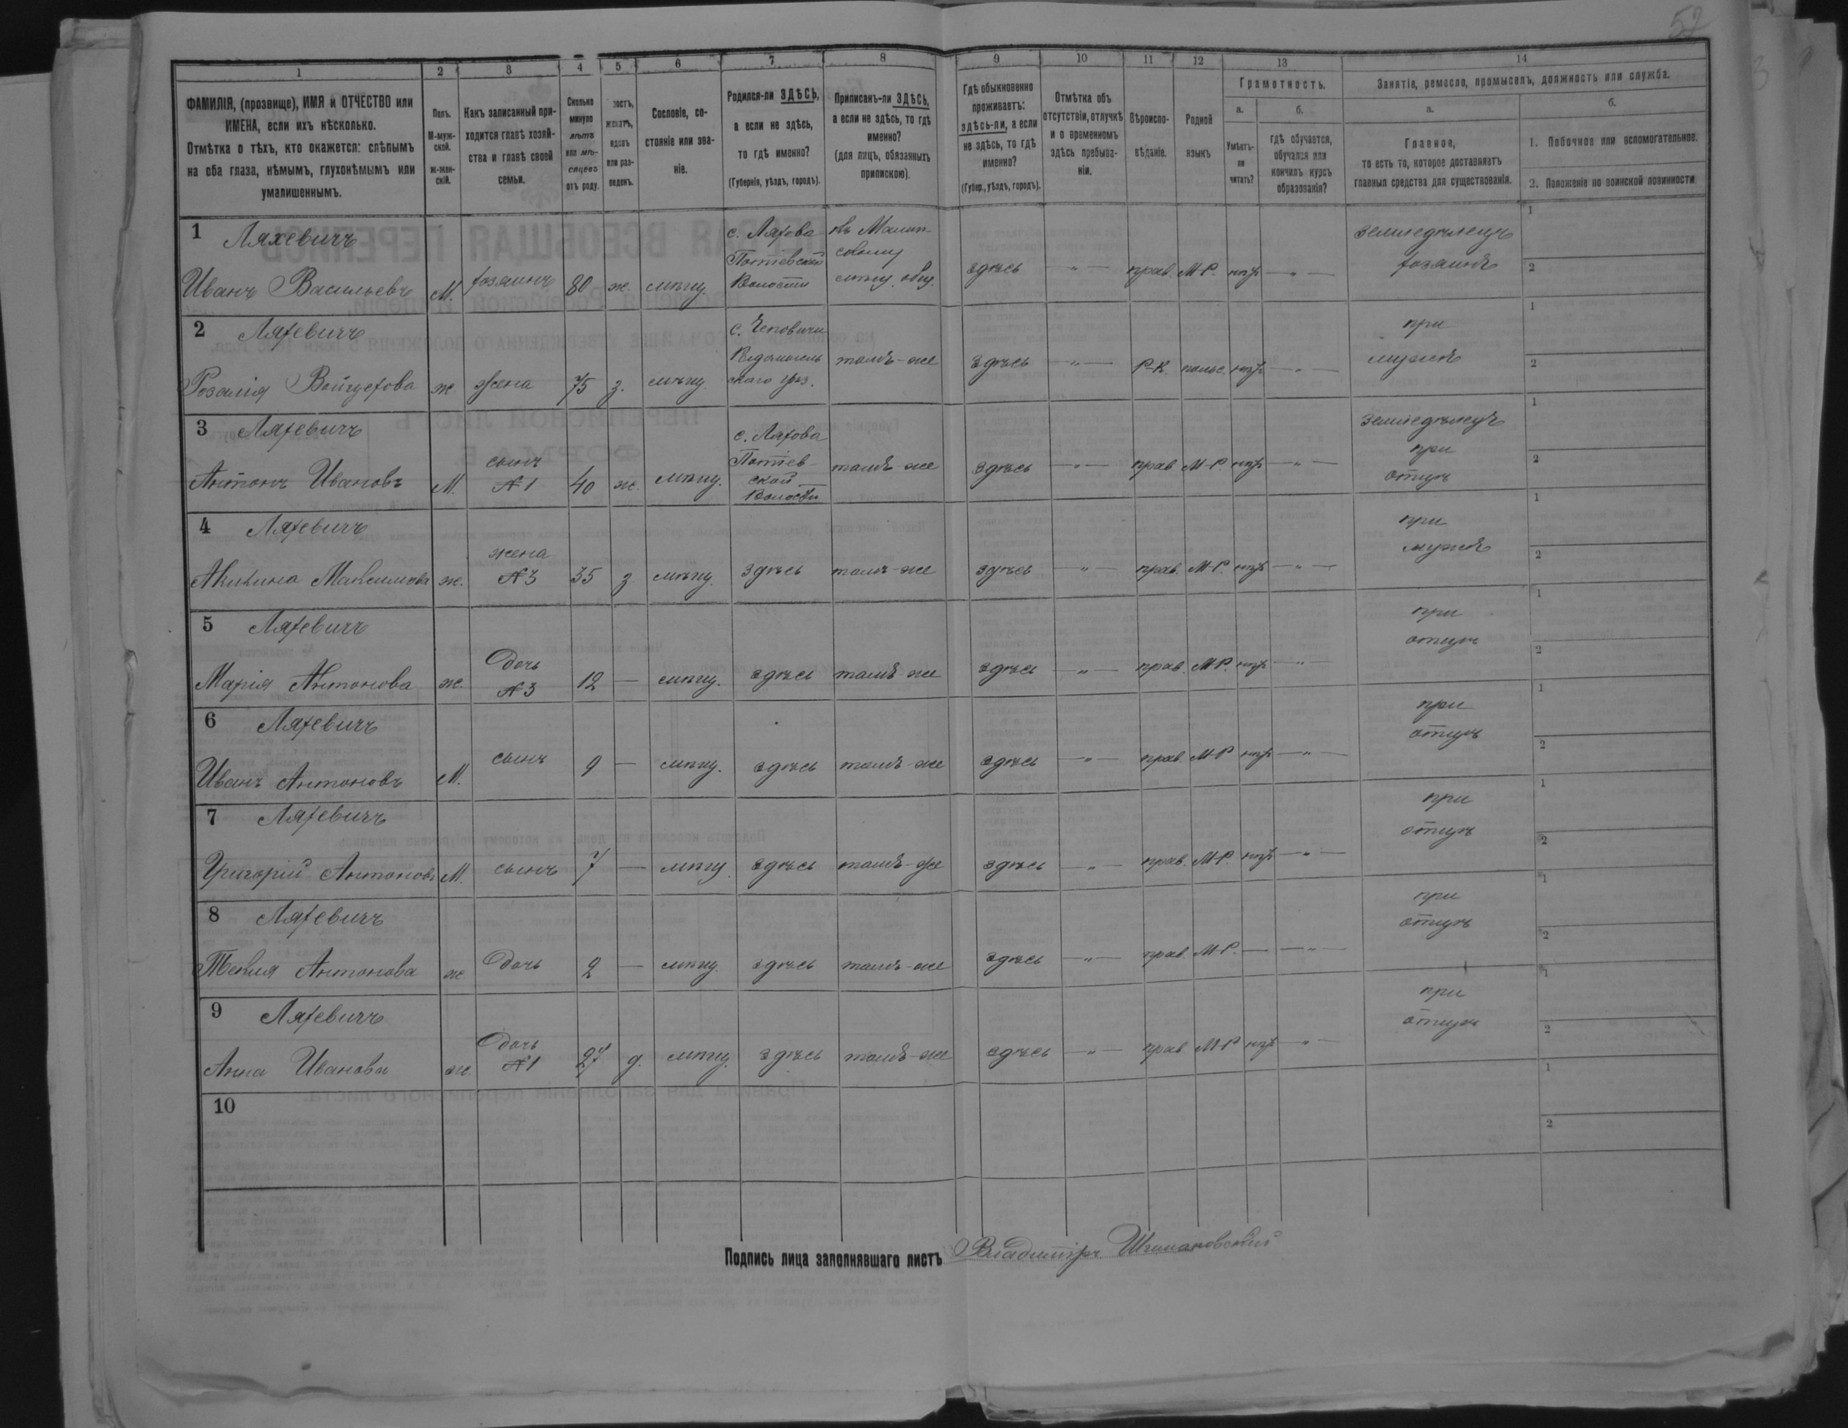 52
1 2 3 4 5 6 7 8 9 10 11 12 13 14
ФАМИЛІЯ, (прозвище), ИМЯ и ОТЧЕСТВО или
ИМЕНА, если ихъ нѣсколько.
Отмѣтка о тѣхъ, кто окажется: слѣпымъ
на оба глаза, нѣмымъ, глухонѣмымъ или
умалишеннымъ.
Полъ.
М-муж-
ской.
Ж-жен-
скій.
Какъ записанный при-
ходится главѣ хозяй-
ства и главѣ своей
семьи.
Сколько
минуло
лѣтъ
или мѣ-
сяцевъ
отъ роду.
лостъ,
женатъ,
вдовъ
или раз-
веденъ.
Сословіе, со-
стояніе или зва-
ніе.
Родился-ли ЗДѢСЬ,
а если не здѣсь,
то гдѣ именно?
(Губернія, уѣздъ, городъ).
Приписанъ-ли ЗДѢСЬ,
а если не здѣсь, то гдѣ
именно?
(для лицъ, обязанныхъ
припискою).
Гдѣ обыкновенно
проживаетъ:
здѣсь-ли, а если
не здѣсь, то гдѣ
именно?
(Губер., уѣздъ, городъ).
Отмѣтка объ
отсутствіи, отлучкѣ
и о временномъ
здѣсь пребыва-
ніи.
Вѣроиспо-
вѣданіе.
Родной
языкъ
Грамотность.
а.
Умѣетъ-
ли
читать?
б.
гдѣ обучается,
обучался или
кончилъ курсъ
образованія?
Занятіе, ремесло, промыселъ, должность или служба.
а.
Главное,
то есть то, которое доставляетъ
главныя средства для существованія.
б.
1. Побочное или вспомогательное.
2. Положеніе по воинской повинности
1 Ляхевичъ
Иванъ Васильевъ М. хозяинъ 80 ж. мѣщ.
с. Ляхова
Потіевской
Волости
здѣсь — " — прав. М-Р. нѣтъ — " —
земледѣлецъ
хозяинъ
1
2
2 Ляхевичъ
Розалія Войцехова ж. жена 75 з. мѣщ.
с. Чеповичи
Радомысль
скаго уѣз.
тамъ-же здѣсь — " — Р-К. польс. нѣтъ — " —
при
мужѣ
1
2
3 Ляхевичъ
Антонъ Ивановъ М. сынъ
№ 1 40 ж. мѣщ.
с. Ляхова
Потіев-
ской
Волости
тамъ-же здѣсь — " — прав. М-Р. нѣтъ — " —
земледѣлецъ
при
отцѣ
1
2
4 Ляхевичъ
Акилина Максимова ж. жена
№ 3 35 з мѣщ. здѣсь тамъ-же здѣсь — " — прав. М-Р. нѣтъ — " —
при
мужѣ
1
2
5 Ляхевичъ
Марія Антонова ж. Дочь
№ 3 12 — мѣщ. здѣсь тамъ-же здѣсь — " — прав. М-Р. нѣтъ — " —
при
отцѣ
1
2
6 Ляхевичъ
Иванъ Антоновъ М. сынъ 9 — мѣщ. здѣсь тамъ-же здѣсь — " — прав. М-Р нѣтъ — " —
при
отцѣ
1
2
7 Ляхевичъ
Григорій Антоновъ М. сынъ 7 — мѣщ здѣсь тамъ-же здѣсь — " — прав. М-Р. нѣтъ — " —
при
отцѣ
1
2
8 Ляхевичъ
Антонова ж Дочь 2 — мѣщ. здѣсь тамъ-же здѣсь — " — прав. М-Р. — — " —
при
отцѣ
1
2
9 Ляхевичъ
Анна Иванова ж. Дочь
№ 1 27 д. мѣщ. здѣсь тамъ-же здѣсь — " — прав М-Р нѣтъ — " —
при
отцѣ
1
2
10
1
2
Подпись лица заполнявшаго листъ Владиміръ